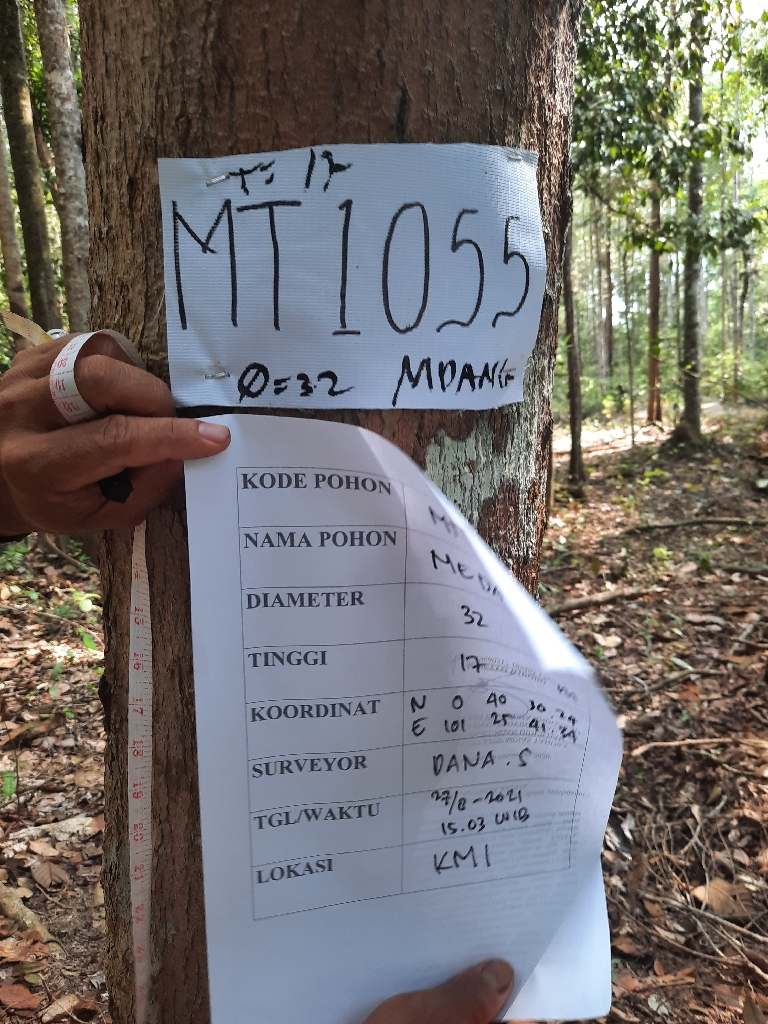 T: 17
MT1055
Ø=32 MDANG
KODE POHON
NAMA POHON MEDA
DIAMETER 32
TINGGI 17 m
KOORDINAT N 0 40 30.24
E 101 25 41.24
SURVEYOR DANA.S
TGL/WAKTU 27/8-2021
15.03 WIB
LOKASI KM1